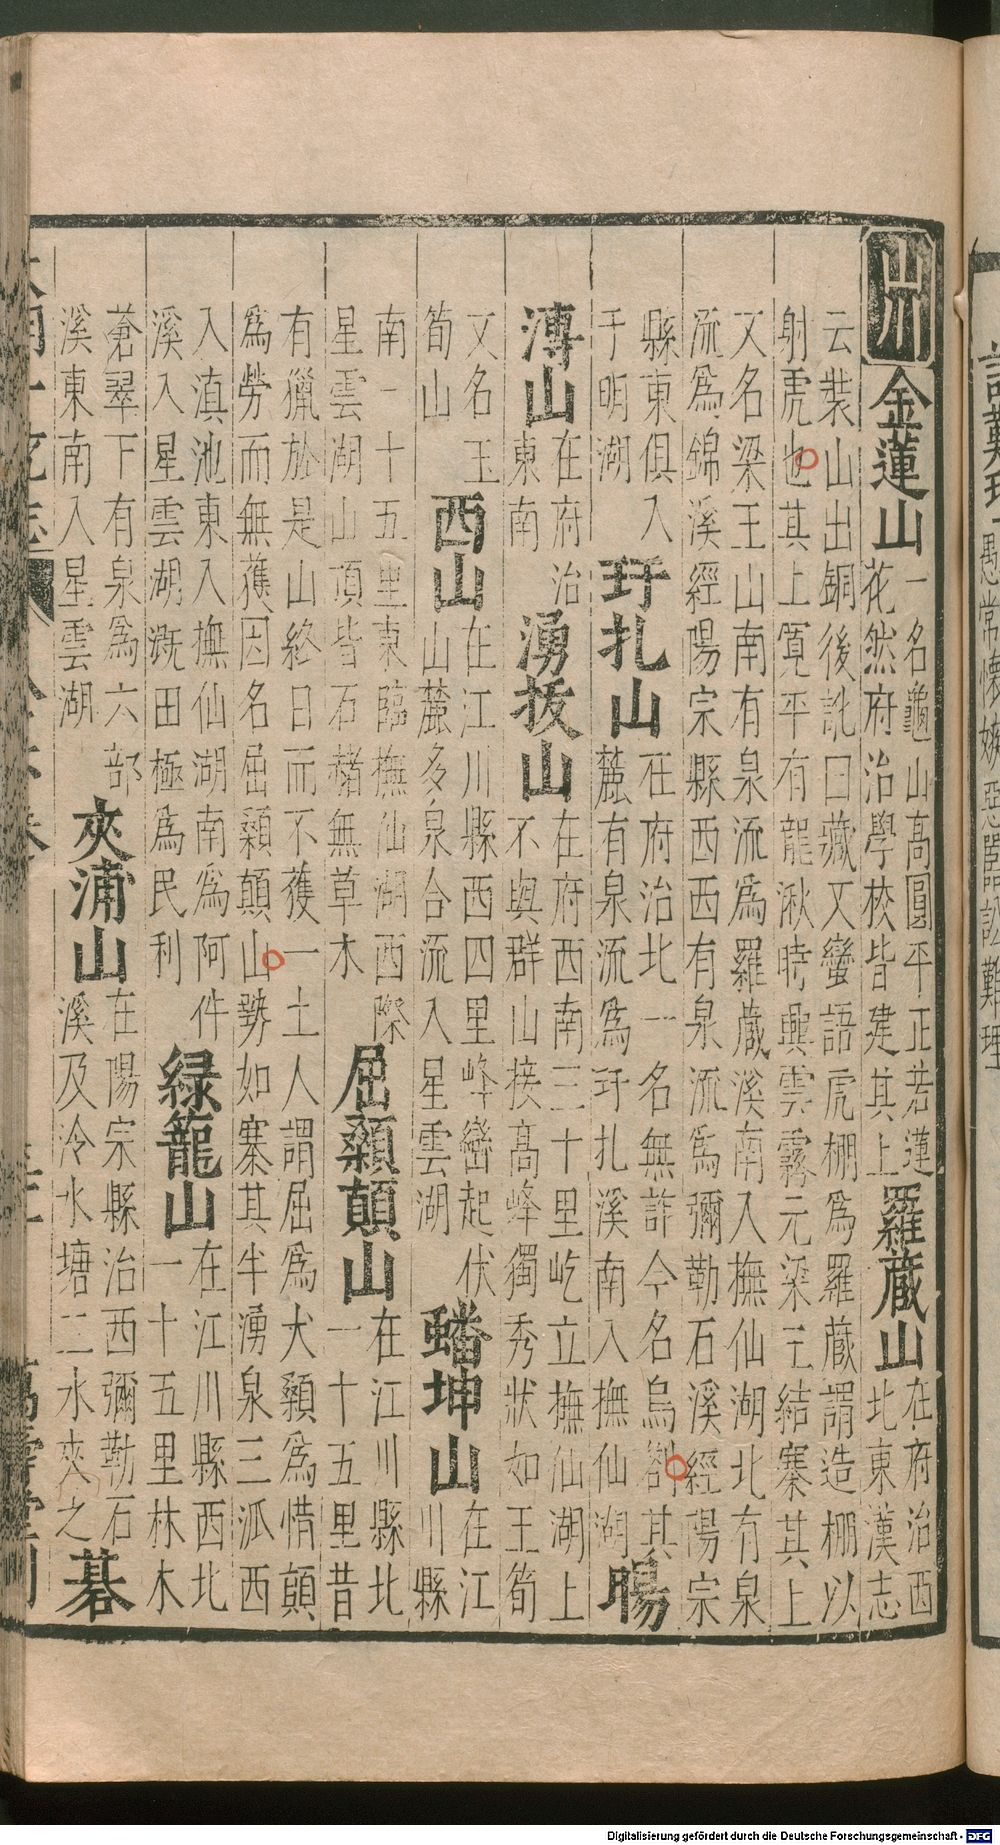 山川
金蓮山
一名龜山高圓平正若蓮
花然府治學校皆建其上
羅蔵山
在府治西
北東漢志
云裝山出銅後訛曰藏又蠻語虎棚爲羅蔵謂造棚以
射虎也其上寬平有龍湫時興雲霧元梁王結寨其上
又名梁王山南有泉流爲羅蔵溪南入撫仙湖北有泉
流爲錦溪經陽宗縣西西有泉流爲彌勒石溪經陽宗
縣東俱入
于明湖
玗扎山
在府治北一名無訴今名烏劄其
麓有泉流爲玗扎溪南入撫仙湖
暘
漙山
在府治
東南
湧抜山
在府西南三十里屹立撫仙湖上
不與群山接髙峰獨秀狀如王筍
又名玉
筍山
西山
在江川縣西四里峰巒起伏
山麓多泉合流入星雲湖
蟠坤山
在江
川縣
南一十五里東臨撫仙湖西際
星雲湖山頂皆石赭無草木
屈顙顛山
在江川縣北
一十五里昔
有獵於是山終日而不獲一土人謂屈爲犬顙爲惜顛
爲勞而無獲因名屈顙顛山勢如寨其半湧泉三派西
入滇池東入撫仙湖南爲阿件
溪入星雲湖漑田極爲民利
緑籠山
在江川縣西北
一十五里林木
蒼翠下有泉爲六部
溪東南入星雲湖
夾浦山
在陽宗縣治西彌勒石
溪及冷水塘二水夾之
碁